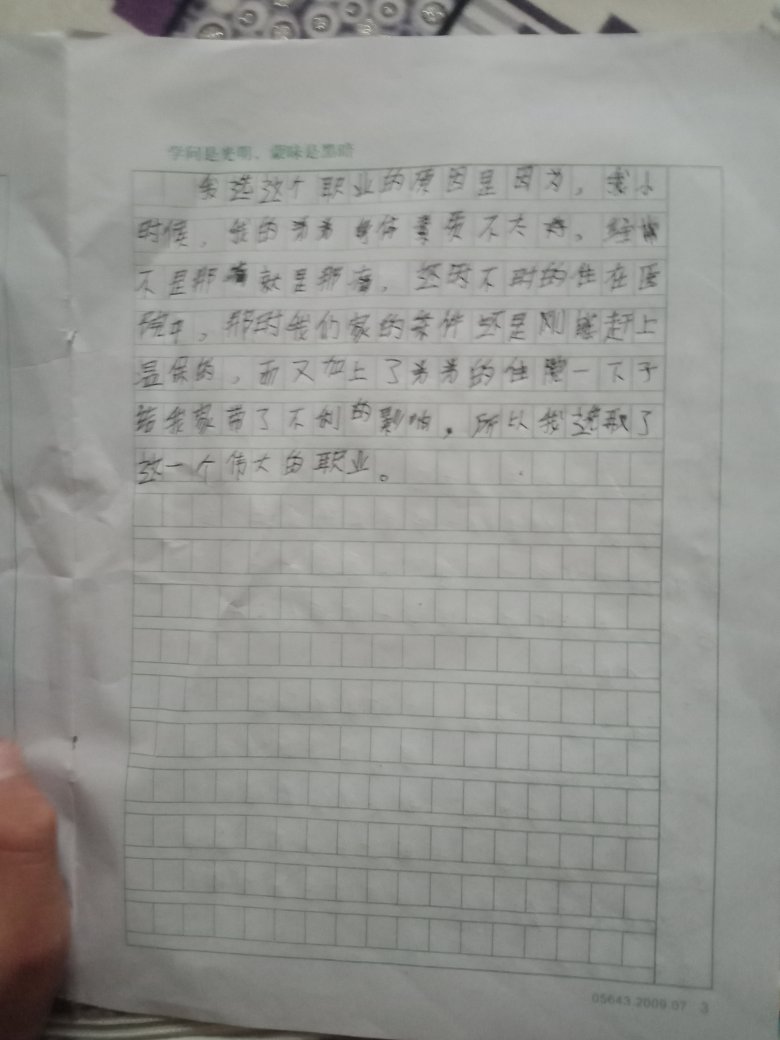 学问是光明，蒙昧是黑暗
我选这个职业的原因是因为，我小
时候，我的爷爷身体素质不太好，经常
不是那有就是那有，还时不时的住在医
院中，那时我们家的条件还是刚能赶上
温保的，而又加上了爷爷的住院一下子
给我家带了不利的影响，所以我选取了
这一个伟大的职业。
05643.2009.07 3